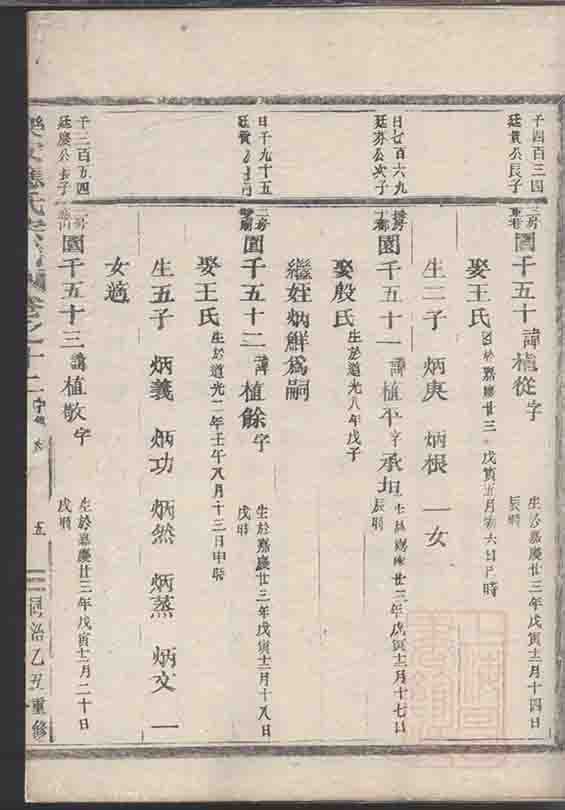 千四百三四
廷贊公長子
三房
園千五十 諱植從 字 生於嘉慶廿三年戊寅十二月十四日
辰時
娶王氏 於嘉慶廿三 戊寅 月 六日 時
生二子 炳庚 炳根 一女
日七百六九
廷 公次子
園千五十一 諱植平字承 生於嘉慶廿三年戊寅十二月十七日
辰時
娶殷氏 生於道光八年戊子
繼姪炳鮮為嗣
日千九十五
廷
二房
園千五十二 諱植餘 字 生於嘉慶廿三年戊寅十二月十八日
戌時
娶王氏 生於道光二年壬午八月十三日申時
生五子 炳義 炳功 炳然 炳蒸 炳文 一
女適
千三百五四
廷慶公長子
二房
園千五十三 諱植敬 字 生於嘉慶廿三年戊寅十二月二十日
戌時
氏宗 卷之十二 五 同治乙丑重修